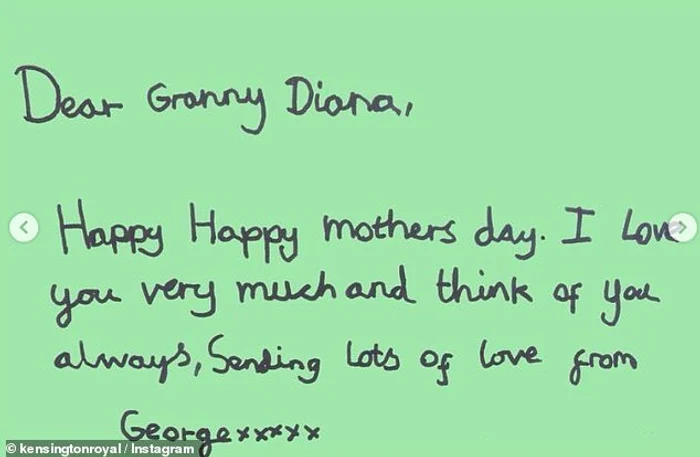 Dear Granny Diana,
Happy Happy mothers day. I Love
you very much and think of you
always, Sending Lots of love from
Georgexxxxx
© kensingtonroyal / Instagram